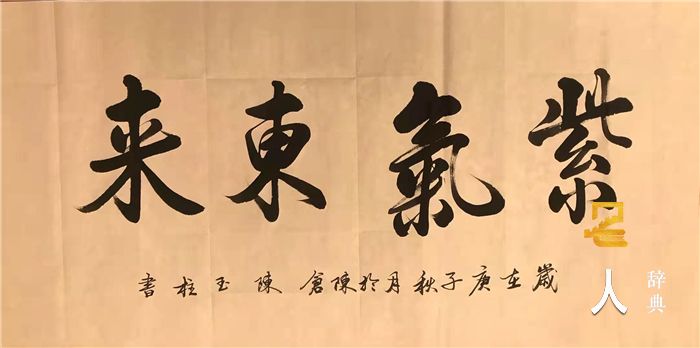 紫氣東来
歲在庚子秋月於陳倉 陳玉柱書
人
辞典